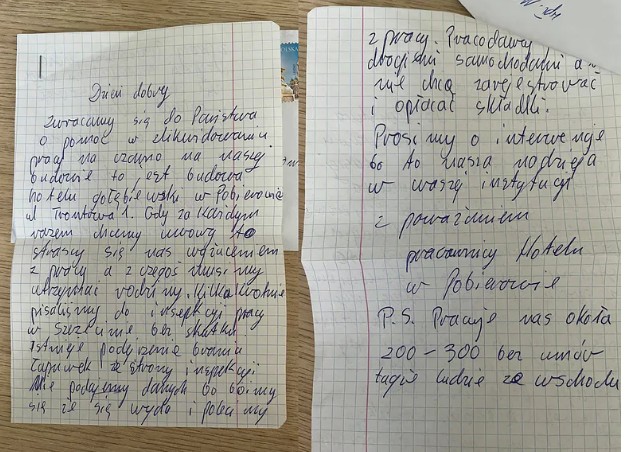 Dzień dobry
Zwracamy się do Państwa
o pomoc w zlikwidowaniu
pracy na czarno na naszej
budowie to jest budowa
hotelu gołębiewski w Pobierowie
ul Trontowa 1. Gdy za każdym
razem chcemy umowę to
straszy się nas wyrzuceniem
z pracy a z czegoś musimy
utrzymać rodziny. Kilkakrotnie
pisaliśmy do inspekcji pracy
w Szczecinie bez skutku
Istnieje podejrzenie brania
łapuwek ze strony inspekcji
Nie podajemy danych bo boimy
się że się wyda i polecimy
z pracy. Pracodawcy
drogimi samochodami a
nie chcą zarejestrować
i opłacać składki.
Prosimy o interwencje
bo to nasza nadzieja
w waszej instytucji
z poważaniem
pracownicy Hotelu
w Pobierowie
P.S. Pracuje nas około
200 - 300 bez umów
także ludzie ze wschodu